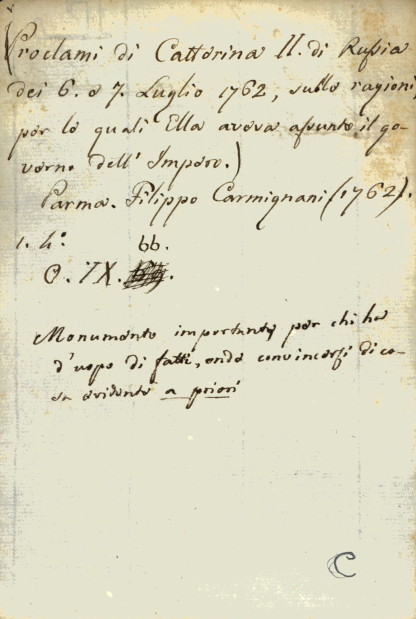 (Proclami di Catterina II. di Russia
dei 6. e 7. Luglio 1762, sulle ragioni,
per le quali Ella aveva assunto il go-
verno dell' Impero.)
Parma. Filippo Carmignani (1762).
1. 4°. 66.
O. IX.
Monumento importante per chi ha
d'uopo di fatti, onde convincersi di co-
sa evidente a priori
C